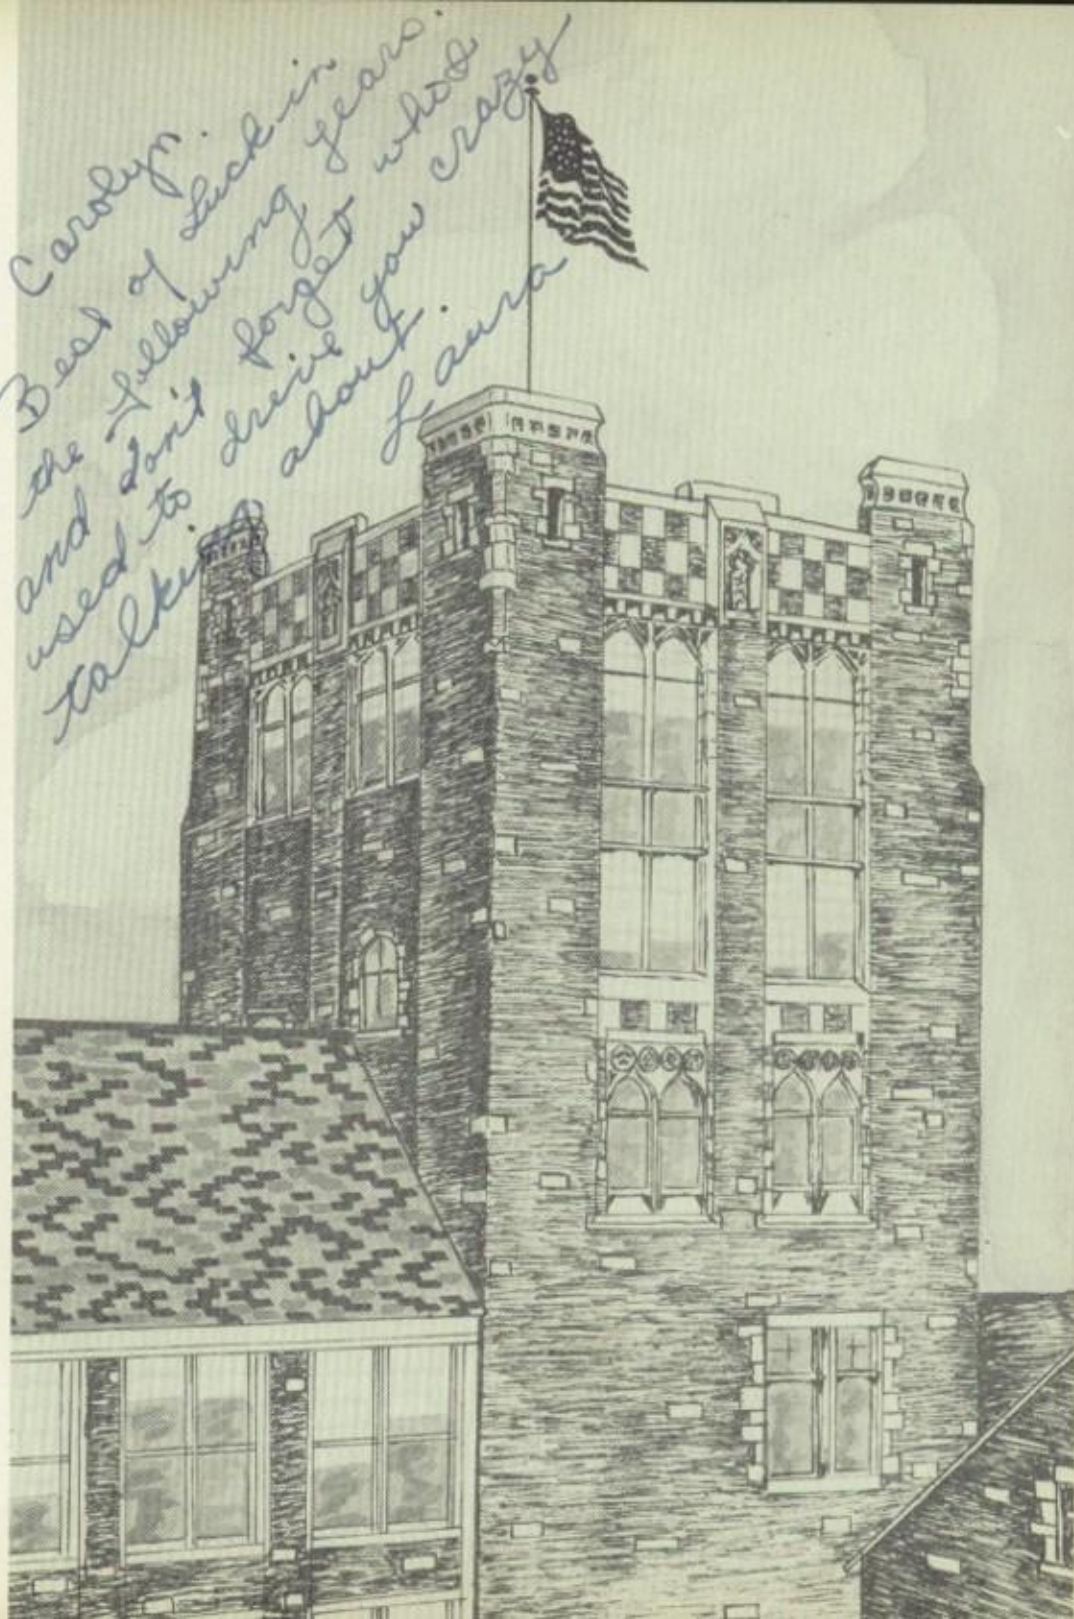 Carolyn.
Best of Luck in
the following years.
and don't forget who I
used to drive you crazy
talking about.
Laura